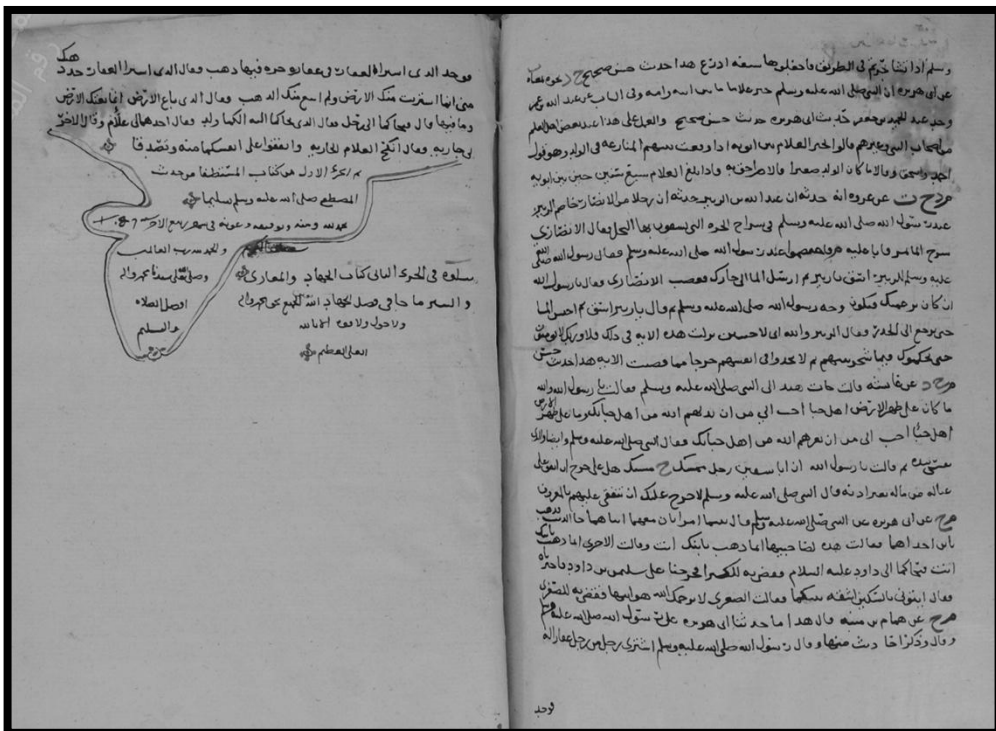 وسلم اذا تشاجرتم في الطريق فاجعلوها سبعة اذرع هذا حديث حسن صحيح
عن ابي هريرة ان النبي صلى الله عليه وسلم خير غلاما بين ابيه وامه وفي الباب عن عبد الله بن عمر
وجد عبد الحميد بن جعفر حديث ابي هريرة حديث حسن صحيح والعمل على هذا عند بعض اهل العلم
من اصحاب النبي وغيرهم قالوا يخير الغلام بين ابويه اذا وقعت بينهم المنازعة في الولد وهو قول
احمد واسحق وقالا ما كان الولد صغيرا فالام احق به فاذا بلغ الغلام سبع سنين خير بين ابويه
عن عروة انه حدثه ان عبد الله بن الزبير حدثه ان رجلا من الانصار خاصم الزبير
عند رسول الله صلى الله عليه وسلم في شراج الحرة التي يسقون بها النخل فقال الانصاري
سرح الما يمر فابا عليه فاختصموا عند رسول الله صلى الله عليه وسلم فقال رسول الله صلى الله
عليه وسلم للزبير اسق يا زبير ثم ارسل الما الى جارك فغضب الانصاري فقال يا رسول الله
ان كان بن عمتك فتلون وجه رسول الله صلى الله عليه وسلم ثم قال يا زبير اسق ثم احبس الما
حتى يرجع الى الجدر فقال الزبير والله اني لاحسب نزلت هذه الاية في ذلك فلا وربك لا يومنون
حتى يحكموك فيما شجر بينهم ثم لا يجدوا في انفسهم حرجا مما قضيت الاية هذا حديث حسن
عن عائشة قالت جات هند الى النبي صلى الله عليه وسلم فقالت يا رسول الله والله
ما كان على ظهر الارض اهل خبا احب الي من ان يذلهم الله من اهل خبائك وما على ظهر الارض
اهل خبا احب الي من ان يعزهم الله من اهل خبائك فقال النبي صلى الله عليه وسلم وايضا والذي
نفسي بيده ثم قالت يا رسول الله ان ابا سفين رجل ممسك مسيك هل علي حرج ان انفق على
عياله من ماله بغير اذنه قال النبي صلى الله عليه وسلم لا حرج عليك ان تنفقي عليهم بالمعروف
عن ابي هريرة عن النبي صلى الله عليه وسلم قال بينما امراتان معهما ابناهما جا الذيب فذهب
بابن احداهما فقالت هذه لصاحبتها انما ذهب بابنك انت وقالت الاخرى انما ذهب بابنك
انت فتحاكما الى داود عليه السلام فقضى به للكبرى فخرجتا على سليمن بن داود فاخبرتاه
فقال ايتوني بالسكين اشقه بينكما فقالت الصغرى لا يرحمك الله هو ابنها فقضى به للصغرى
عن همام بن منبه قال هذا ما حدثنا ابي هريرة عن رسول الله صلى الله عليه وسلم
وقال وذكر احاديث منها وقال رسول الله صلى الله عليه وسلم اشترى رجل من رجل عقارا له
فوجد
فوجد الذي اشترى العقار في عقاره جرة فيها ذهب فقال الذي اشترا العقار خذ ذهبك
مني انما اشتريت منك الارض ولم ابتع منك الذهب وقال الذي باع الارض انما بعتك الارض
وما فيها قال فتحاكما الى رجل فقال الذي تحاكما اليه الكما ولد فقال احدهما لي غلام وقال الاخر
لي جارية فقال انكح الغلام الجارية وانفقوا على انفسكما منه وتصدقا
تم الجزء الاول من كتاب
المصطفى صلى الله عليه وسلم تسليما
بحمد الله ومنه وتوفيقه وعونه في شهر ربيع الاخر
والحمد لله رب العالمين
يتلوه في الجزء الثاني كتاب الجهاد والمغازي
وصلى الله على سيدنا محمد واله
والسير ما جا في فضل الجهاد
افضل الصلاة
ولا حول ولا قوة الا بالله
والتسليم
العلي العظيم